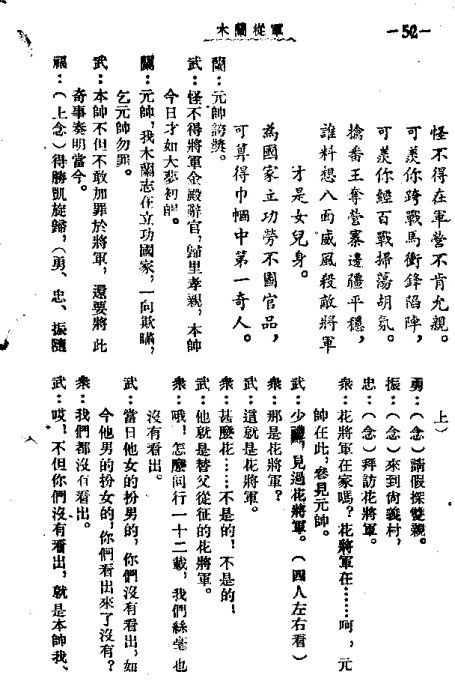 木蘭從軍
—52—
怪不得在軍營不肯允親。
可羨你跨戰馬衝鋒陷陣，
可羨你經百戰掃蕩胡氛。
擒番王奪營寨邊疆平穩，
誰料想八面威風殺敵將軍
才是女兒身。
為國家立功勞不圖官品，
可算得巾幗中第一奇人。
蘭：元帥誇獎。
武：怪不得將軍金殿辭官，歸里孝親，本帥
今日才如大夢初醒。
蘭：元帥，我木蘭志在立功國家，一向欺瞞，
乞元帥勿罪。
武：本帥不但不敢加罪於將軍，還要將此
奇事奏明當今。
福：（上念）得勝凱旋歸，（勇、忠、振隨
上）
勇：（念）請假探雙親。
振：（念）來到尚義村，
忠：（念）拜訪花將軍。
衆：花將軍在家嗎？花將軍在……呵，元
帥在此，參見元帥。
武：少禮，見過花將軍。（四人左右看）
衆：那是花將軍？
武：這就是花將軍。
衆：甚麼花……不是的！不是的！
武：他就是替父從征的花將軍。
衆：哦！怎麼同行一十二載，我們絲毫也
沒有看出。
武：當日他女的扮男的，你們沒有看出，如
今他男的扮女的，你們看出來了沒有？
衆：我們都沒有看出。
武：哎！不但你們沒有看出，就是本帥我、